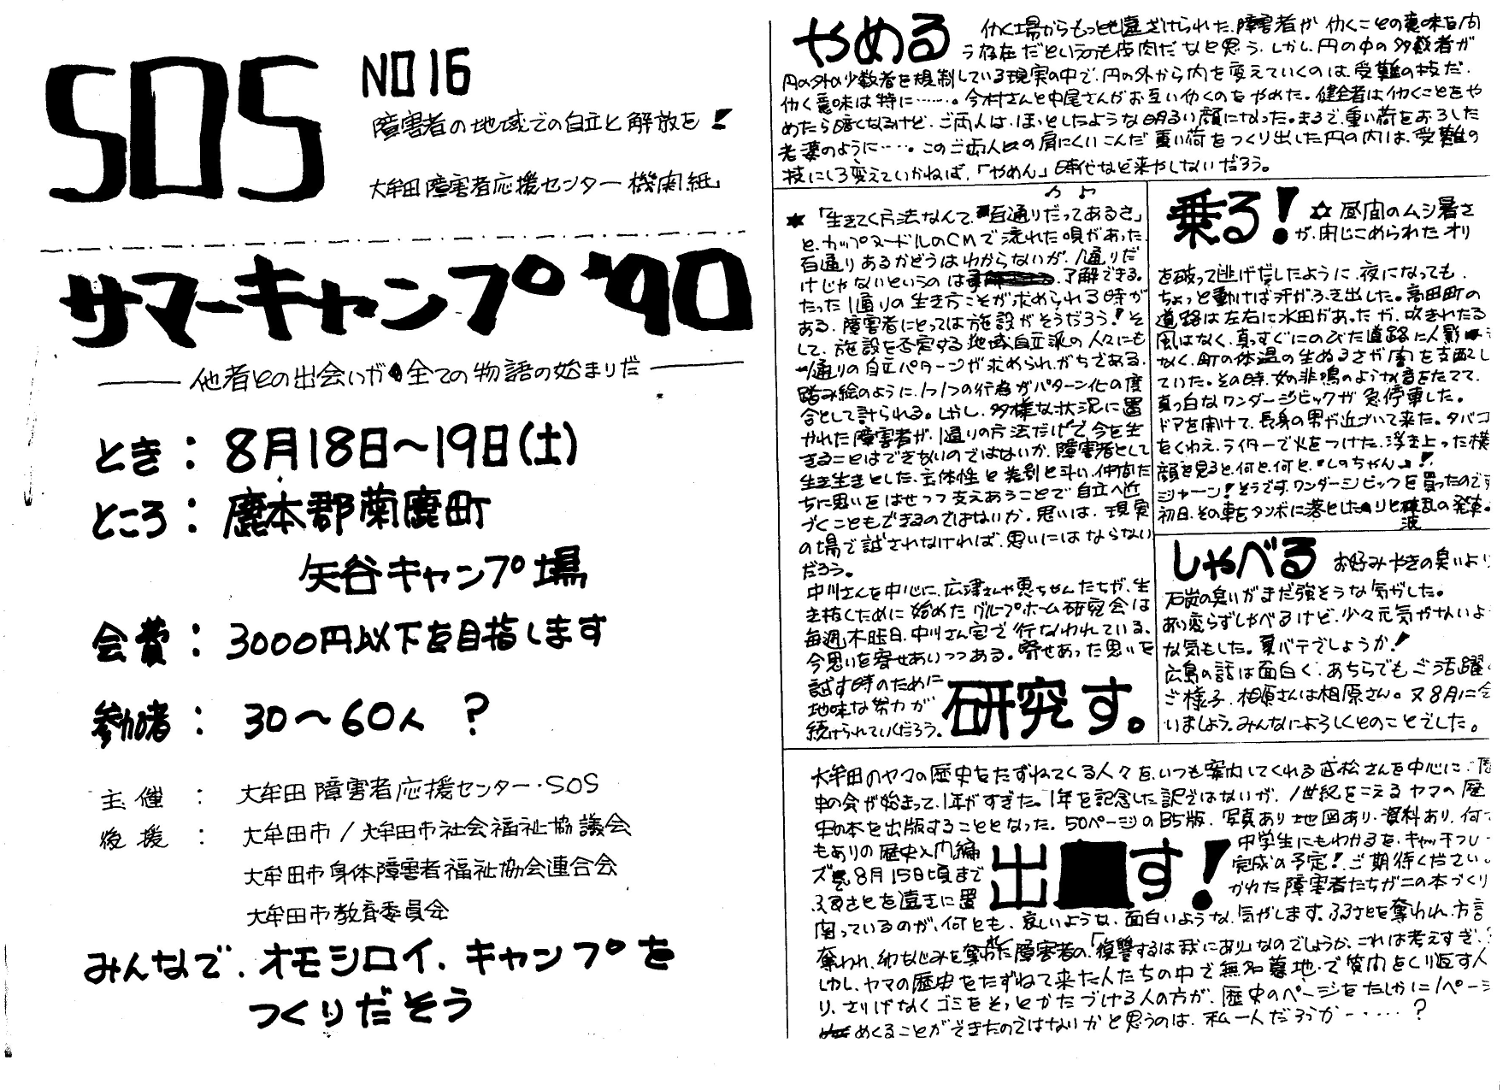 SOS
NO16
障害者の地域での自立と解放を!
大牟田障害者応援センター機関紙
サマーキャンプ'90
他者との出会いが全ての物語の始まりだ
とき：8月18日～19日(土)
ところ：鹿本郡菊鹿町
矢谷キャンプ場
会費：3000円以下を目指します
参加者：30～60人　?
主催：大牟田障害者応援センター・SOS
後援：大牟田市/大牟田市社会福祉協議会
大牟田市身体障害者福祉協会連合会
大牟田市教育委員会
みんなで、オモシロイ、キャンプを
つくりだそう
やめる
働く場からもっとも遠ざけられた、障害者が働くことの意味を問
う存在だというのも皮肉だなと思う。しかし、円の中の多数者が
円の外の少数者を規制している現実の中で、円の外から内を変えていくのは、受難の技だ。
働く意味は特に……。今村さんと中尾さんがお互い働くのをやめた。健全者は働くことをや
めたら暗くなるけど、ご両人は、ほっとしたような明るい顔になった。まるで、重い荷をおろした
老婆のように……。このご両人の肩にくいこんだ重い荷をつくり出した円の内は、受難の
技にしろ変えていかねば、「やめん」時代など来やしないだろう。
★「生きてく方法なんて、百通りだってあるさ」♪♪
と、カップヌードルのCMで流れた唄があった
百通りあるかどうはわからないが、1通りだ
けじゃないというのは、了解できる。
たった1通りの生き方こそが求められる時が
ある、障害者にとっては施設がそうだろう！そ
して、施設を否定する地域自立派の人々にも
1通りの自立パターンが求められがちである。
踏み絵のように、1つ1つの行為がパターン化の度
合として計られる。しかし、多様な状況に置
かれた障害者が、1通りの方法だけで今を生
きることはできないのではないか、障害者として
生き生きとした、主体性と差別と斗い、仲間た
ちに思いをはせつつ支えあうことで自立へ近
づくこともできるのではないか、思いは、現実
の場で試されなければ、思いにはならない
だろう。
中川さんを中心に、広津さんや恵ちゃんたちが、生
き抜くために始めたグループホーム研究会は
毎週、木曜日、中川さん宅で行なわれている。
今思いを寄せあいつつある。寄せあった思いを
試す時のために
地味な努力が
続けられていくだろう。
研究す。
乗る!
☆昼間のムシ暑さ
が、閉じこめられたオリ
を破って逃げだしたように、夜になっても、
ちょっと動けば汗がふき出した。高田町の
道路は左右に水田があったが、吹きわたる
風はなく、真っすぐにのびた道路に人影
なく、町の体温の生ぬるさが闇を支配し
ていた。その時、女の悲鳴のような音をたてて、
真っ白なワンダーシビックが急停車した。
ドアを開けて、長身の男が近づいて来た。タバコ
をくわえ、ライターで火をつけた、浮き上った横
顔を見ると、何と、何と、「しのちゃん」!!
ジャーン!そうです、ワンダーシビックを買ったのです
初日、その車をタンボに落としたりと波乱の発車。
しゃべる
お好みやきの臭いより
石炭の臭いがまだ強そうな気がした。
あい変らずしゃべるけど、少々元気がないよ
な気もした。夏バテでしょうか!
広島の話は面白く、あちらでもご活躍
ご様子、相原さんは相原さん。又8月に会
いましょう。みんなによろしくとのことでした。
大牟田のヤマの歴史をたずねてくる人々を、いつも案内してくれる武松さんを中心に、歴
史の会が始まって、1年がすぎた。1年を記念した訳ではないが、1世紀をこえるヤマの歴
史の本を出版することとなった。50ページのB5版、写真あり、地図あり、資料あり、何で
もありの歴史入門編
中学生にもわかるを、キャッチフレー
ズに8月15日頃まで
完成の予定!ご期待ください。
出す!
ふるさとを遠きに置
かれた障害者たちがこの本づくり
関っているのが、何とも、哀しいような、面白いような、気がします。ふるさとを奪われ、方言
奪われ、幼な心みを奪われた障害者の、「復讐するは我にあり」なのでしょうか、これは考えすぎ、
しかし、ヤマの歴史をたずねて来た人たちの中で無名墓地で質問をくり返す人
り、さりげなくゴミをそっとかたづける人の方が、歴史のページをたしかに1ページ
めくることができたのではないかと思うのは、私一人だろうか……?